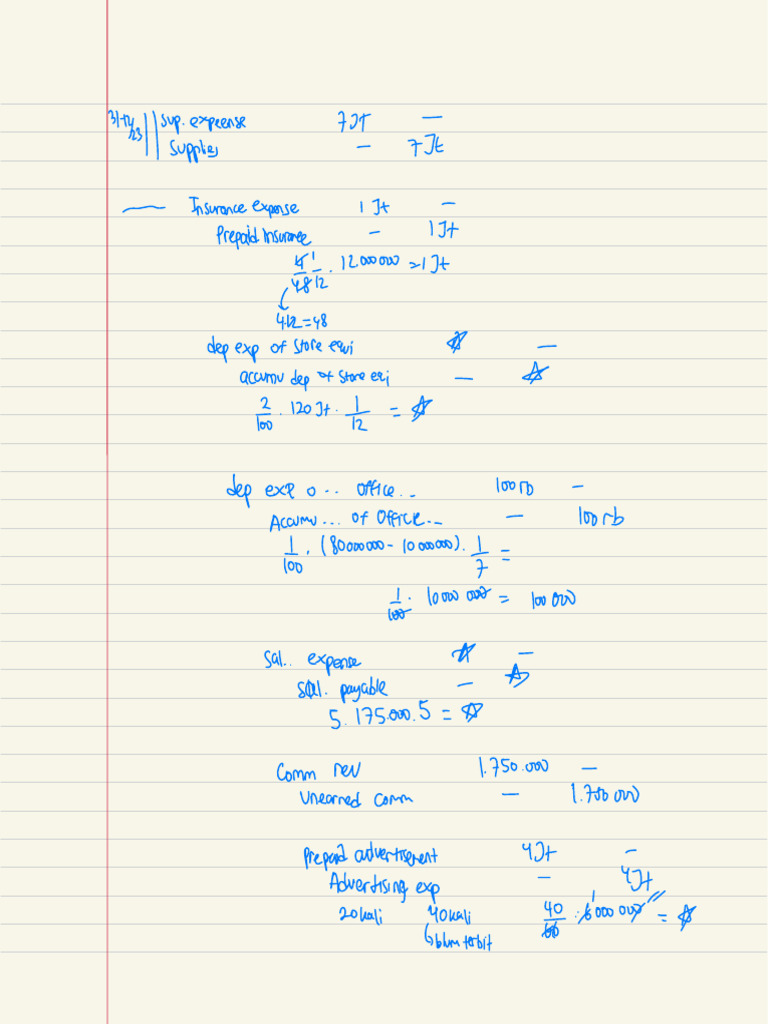 31/12/23 Sup. expeense 7Jt —
Supplies — 7Jt
— Insurance expense 1 Jt —
Prepaid Insurance — 1Jt
4/48 1/12 . 12.000 000 = 1 Jt
4.12 = 48
dep exp of store equi ☆ —
accumu dep of store eqi — ☆
2/100 . 120 Jt . 1/12 = ☆
dep exp o .. office .. 100 rb —
Accumu ... of office .. — 100 rb
1/100 . (80000000 - 10 000000) . 1/7 =
1/100 . 10000 000 = 100 000
Sal.. expense ☆ —
Sal. payable — ☆
5. 175.000. 5 = ☆
Comm rev 1.750.000 —
Unearned comm — 1.750 000
Prepaid advertisement 4Jt —
Advertising exp — 4Jt
20 kali 40 kali 40/60 . 6000 000 = ☆
blum terbit